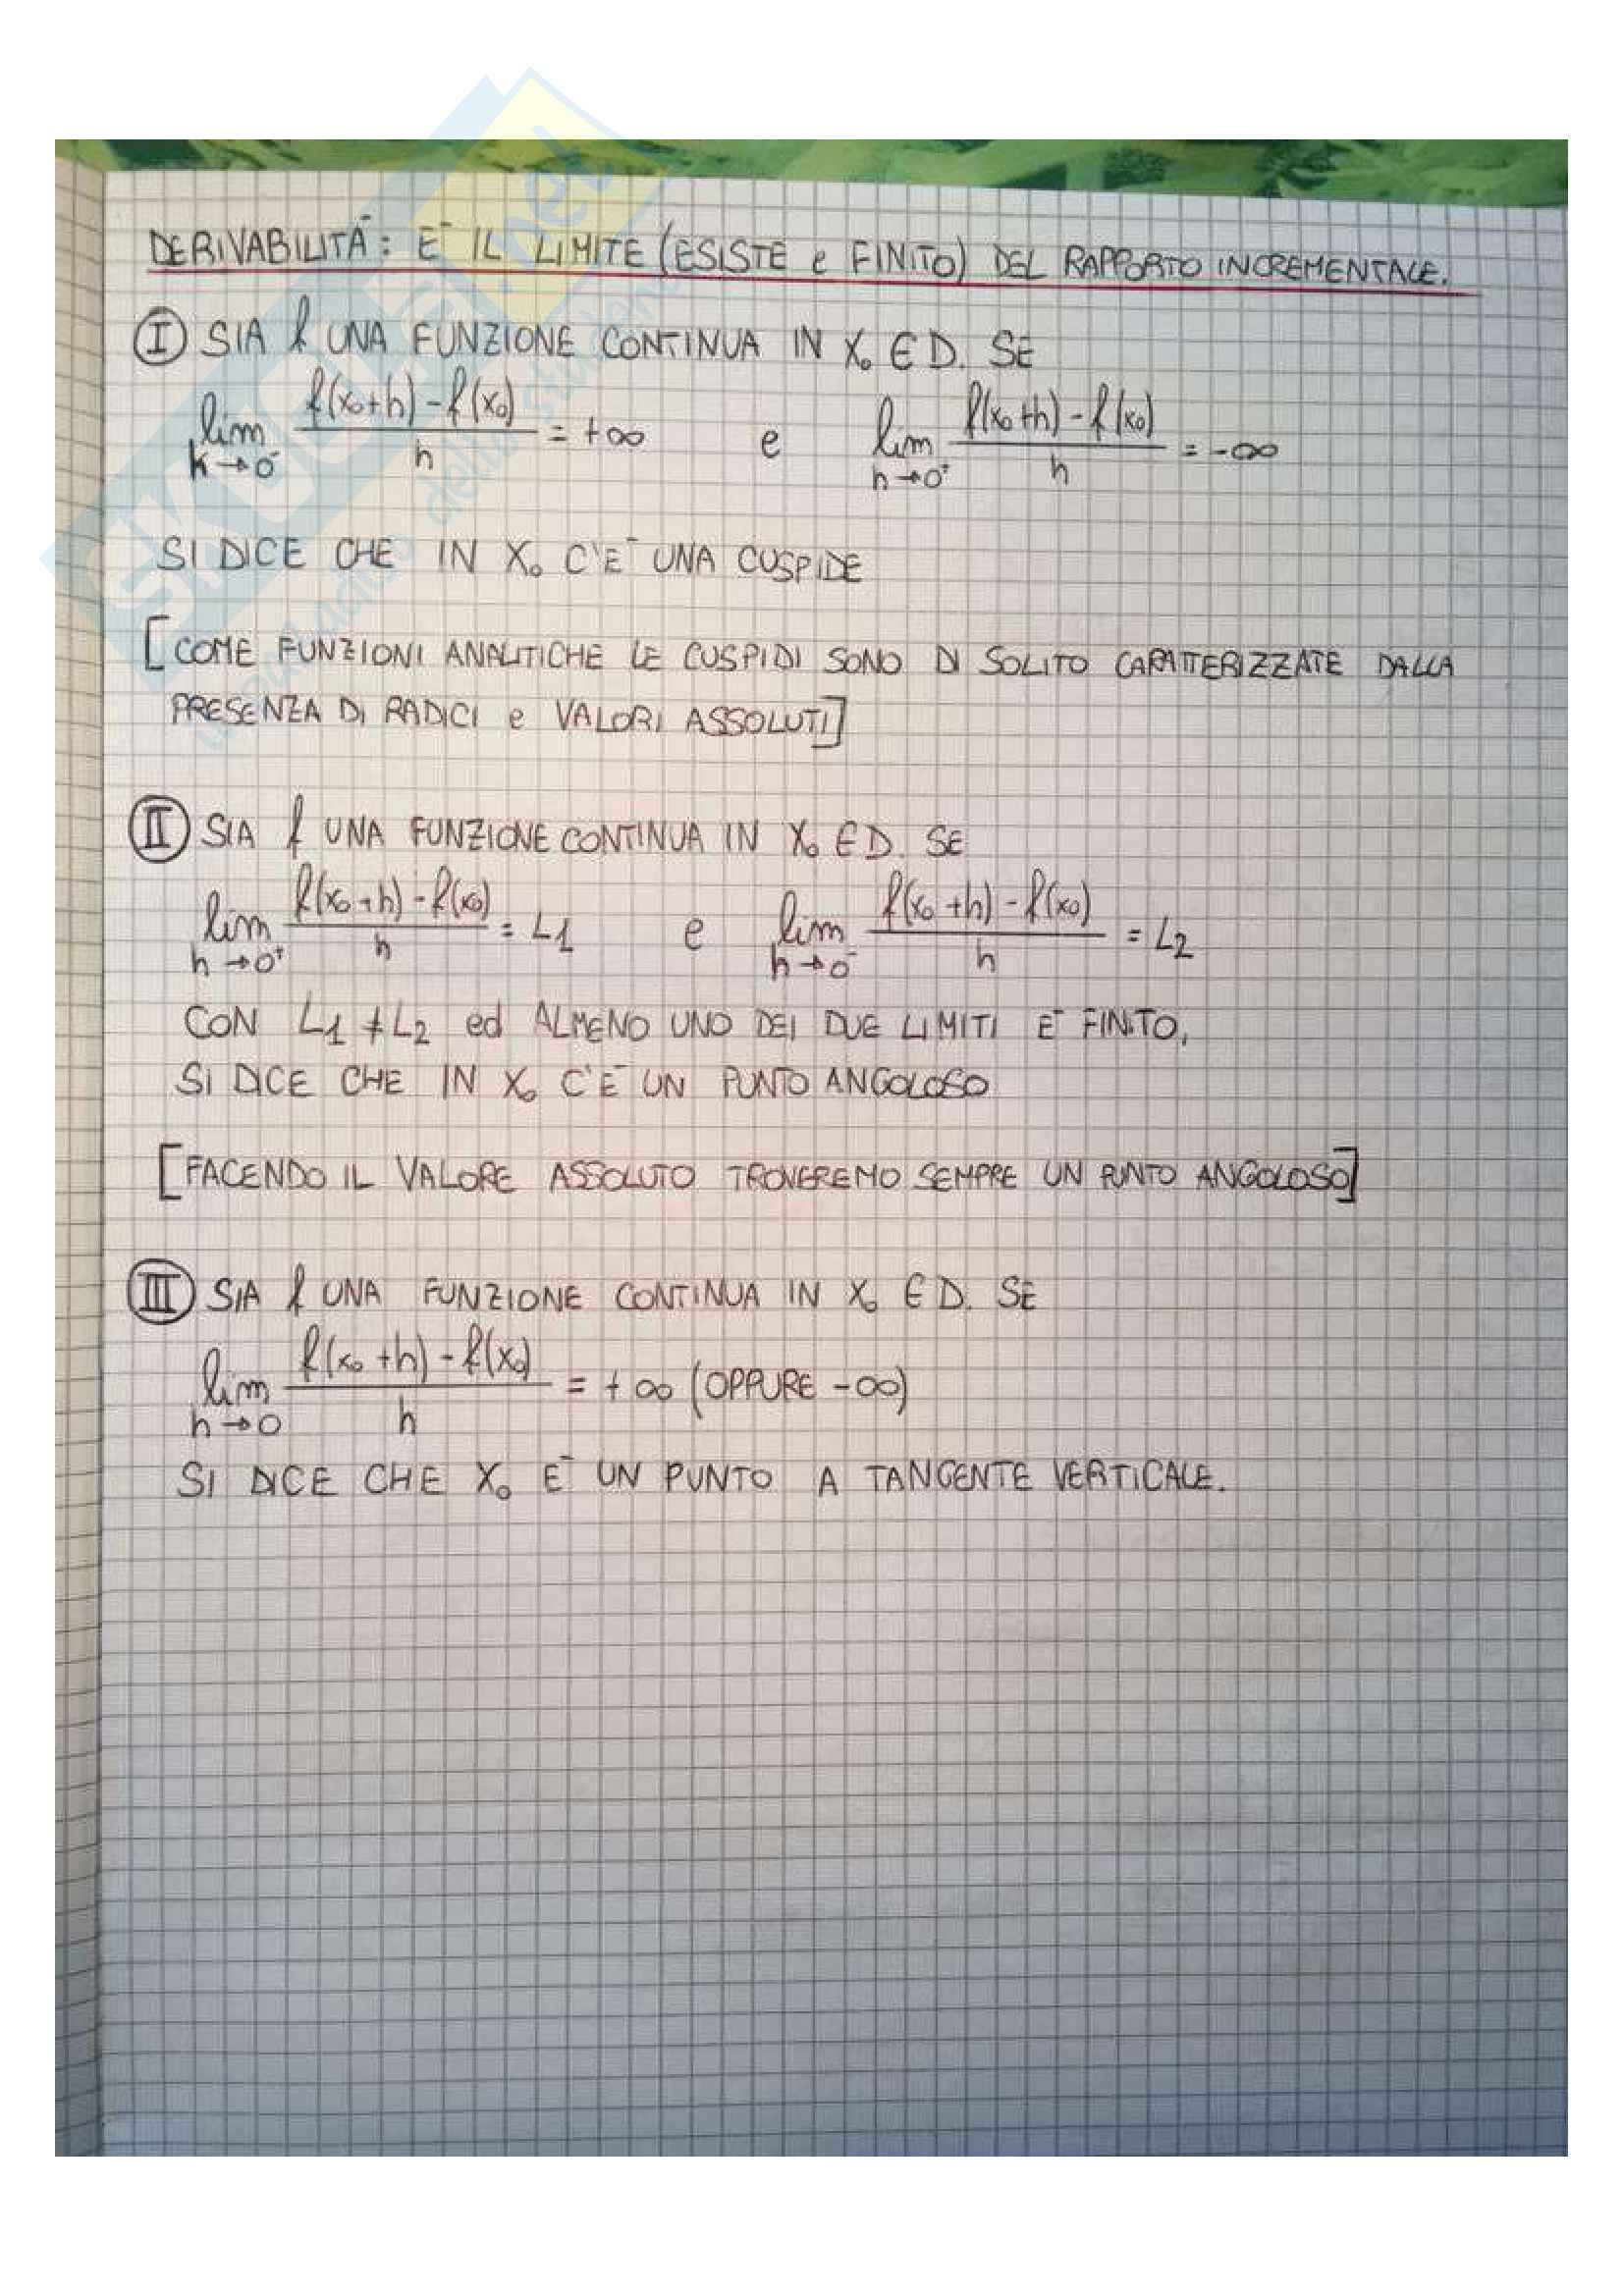 DERIVABILITÀ: È IL LIMITE (ESISTE e FINITO) DEL RAPPORTO INCREMENTALE.
I SIA f UNA FUNZIONE CONTINUA IN X₀ ∈ D. SE
lim h→0⁻ f(x₀+h) - f(x₀) / h = +∞ e lim h→0⁺ f(x₀+h) - f(x₀) / h = -∞
SI DICE CHE IN X₀ C'È UNA CUSPIDE
[COME FUNZIONI ANALITICHE LE CUSPIDI SONO DI SOLITO CARATTERIZZATE DALLA
PRESENZA DI RADICI e VALORI ASSOLUTI]
II SIA f UNA FUNZIONE CONTINUA IN X₀ ∈ D. SE
lim h→0⁺ f(x₀+h) - f(x₀) / h = L1 e lim h→0⁻ f(x₀+h) - f(x₀) / h = L2
CON L1 ≠ L2 ed ALMENO UNO DEI DUE LIMITI È FINITO,
SI DICE CHE IN X₀ C'È UN PUNTO ANGOLOSO
[FACENDO IL VALORE ASSOLUTO TROVEREMO SEMPRE UN PUNTO ANGOLOSO]
III SIA f UNA FUNZIONE CONTINUA IN X₀ ∈ D. SE
lim h→0 f(x₀+h) - f(x₀) / h = +∞ (OPPURE -∞)
SI DICE CHE X₀ È UN PUNTO A TANGENTE VERTICALE.
SKUOLA.net